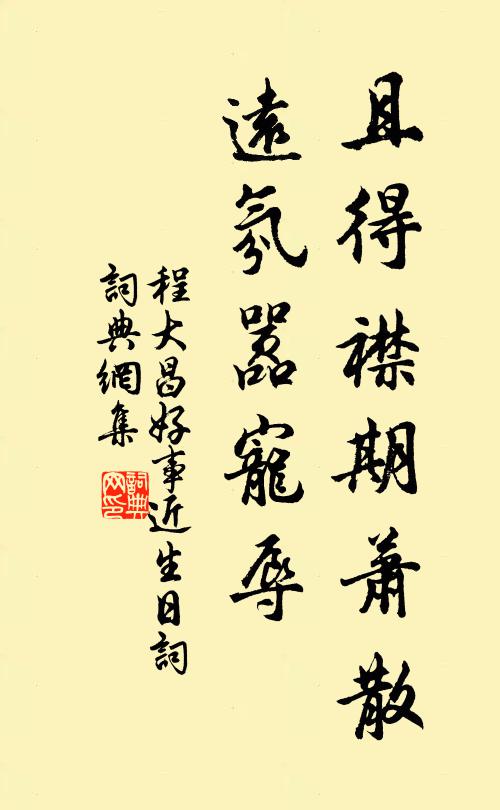 且得襟期蕭散
遠氛囂寵辱
程大昌好事近生日詞
詞典網集
詞典網印